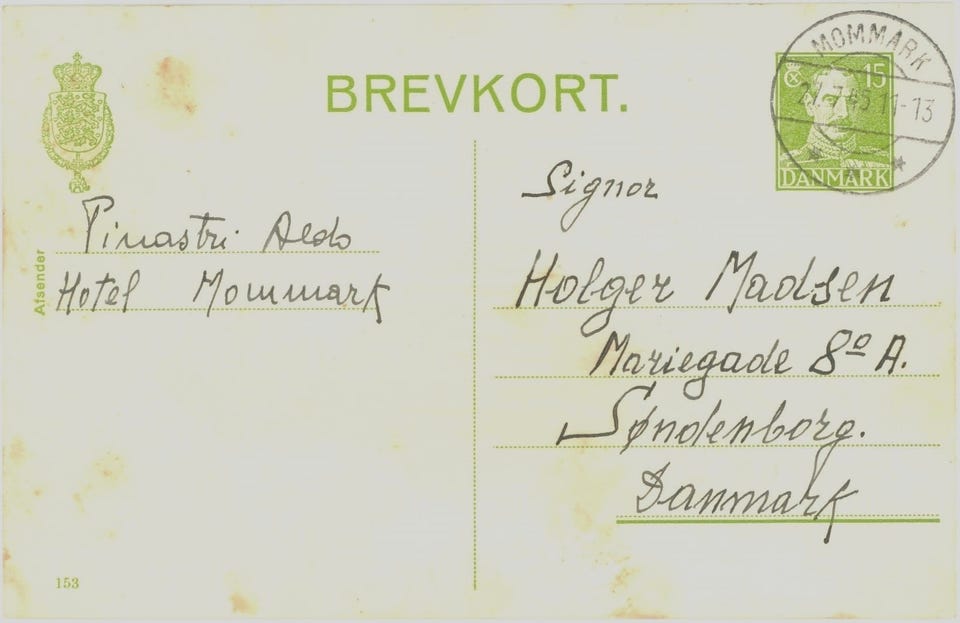 BREVKORT.
MOMMARK
15
DANMARK
Afsender
Pinastri Aldo
Hotel Mommark
Signor
Holger Madsen
Mariegade 8º A.
Søndenborg.
Danmark
153